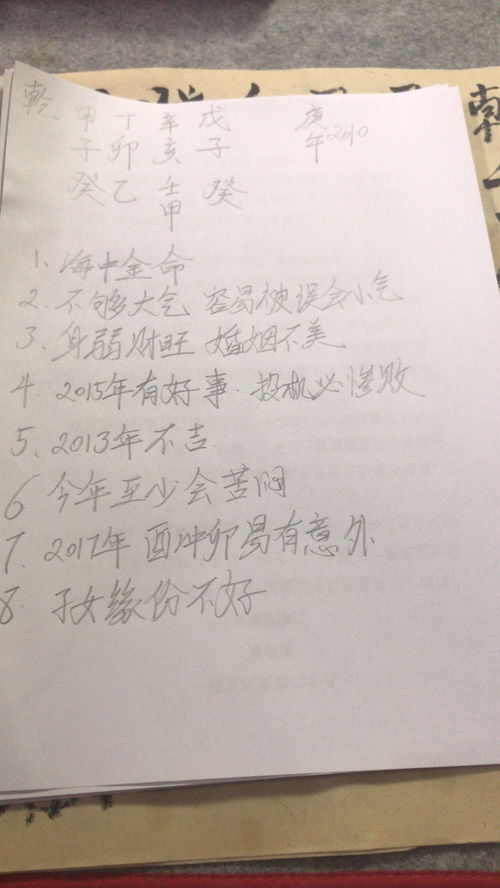 乾、甲 丁 辛 戊 庚
子 卯 亥 子 午2010
癸 乙 壬 癸
甲
1、海中金命
2、不够大气 容易被误会小气
3、身弱财旺 婚姻不美
4、2015年有好事.投机必惨败
5、2013年不吉.
6 今年至少会苦闷
7、2017年 酉冲卯易有意外
8、子女缘份不好
乾